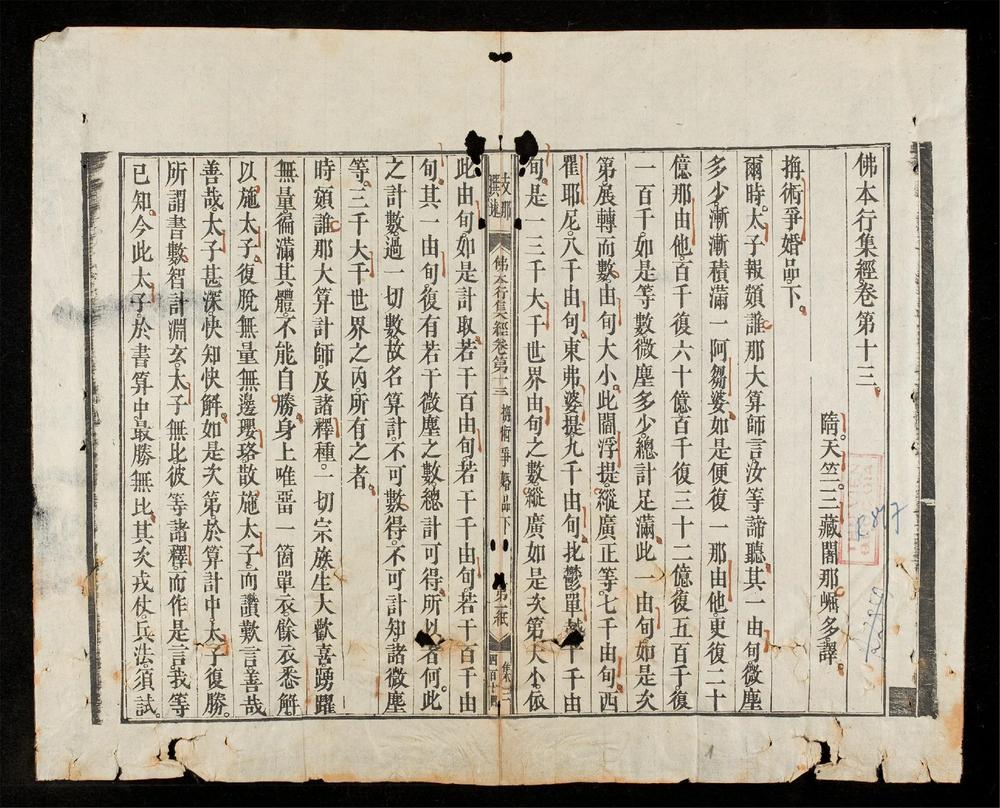 佛本行集經卷第十三
隋天竺三藏闍那崛多譯
捔術爭婚品下
爾時太子報頞誰那大算師言汝等諦聽其一由旬微塵
多少漸漸積滿一阿芻婆如是便復一那由他更復二十
億那由他百千復六十億百千復三十二億復五百千復
一百千如是等數微塵多少總計足滿此一由旬如是次
第展轉而數由旬大小此閻浮提縱廣正等七千由旬西
瞿耶尼八千由旬東弗婆提九千由旬北鬱單越十千由
旬是一三千大千世界由旬之數縱廣如是次第大小依
支那
撰述
佛本行集經卷第十三
捔術爭婚品下
第一紙
集三
此由旬如是計取若干百由旬若干千由旬若干百千由
旬其一由旬復有若干微塵之數總計可得所以者何此
之計數過一切數故名算計不可數得不可計知諸微塵
等三千大千世界之內所有之者
時頞誰那大算計師及諸釋種一切宗族生大歡喜踴躍
無量徧滿其體不能自勝身上唯畱一箇單衣餘衣悉解
以施太子復脫無量無邊瓔珞散施太子而讚歎言善哉
善哉太子甚深快知快解如是次第於算計中太子復勝
所謂書數智計淵玄太子無比彼等諸釋而作是言我等
已知今此太子於書算中最勝無比其次戎仗兵法須試